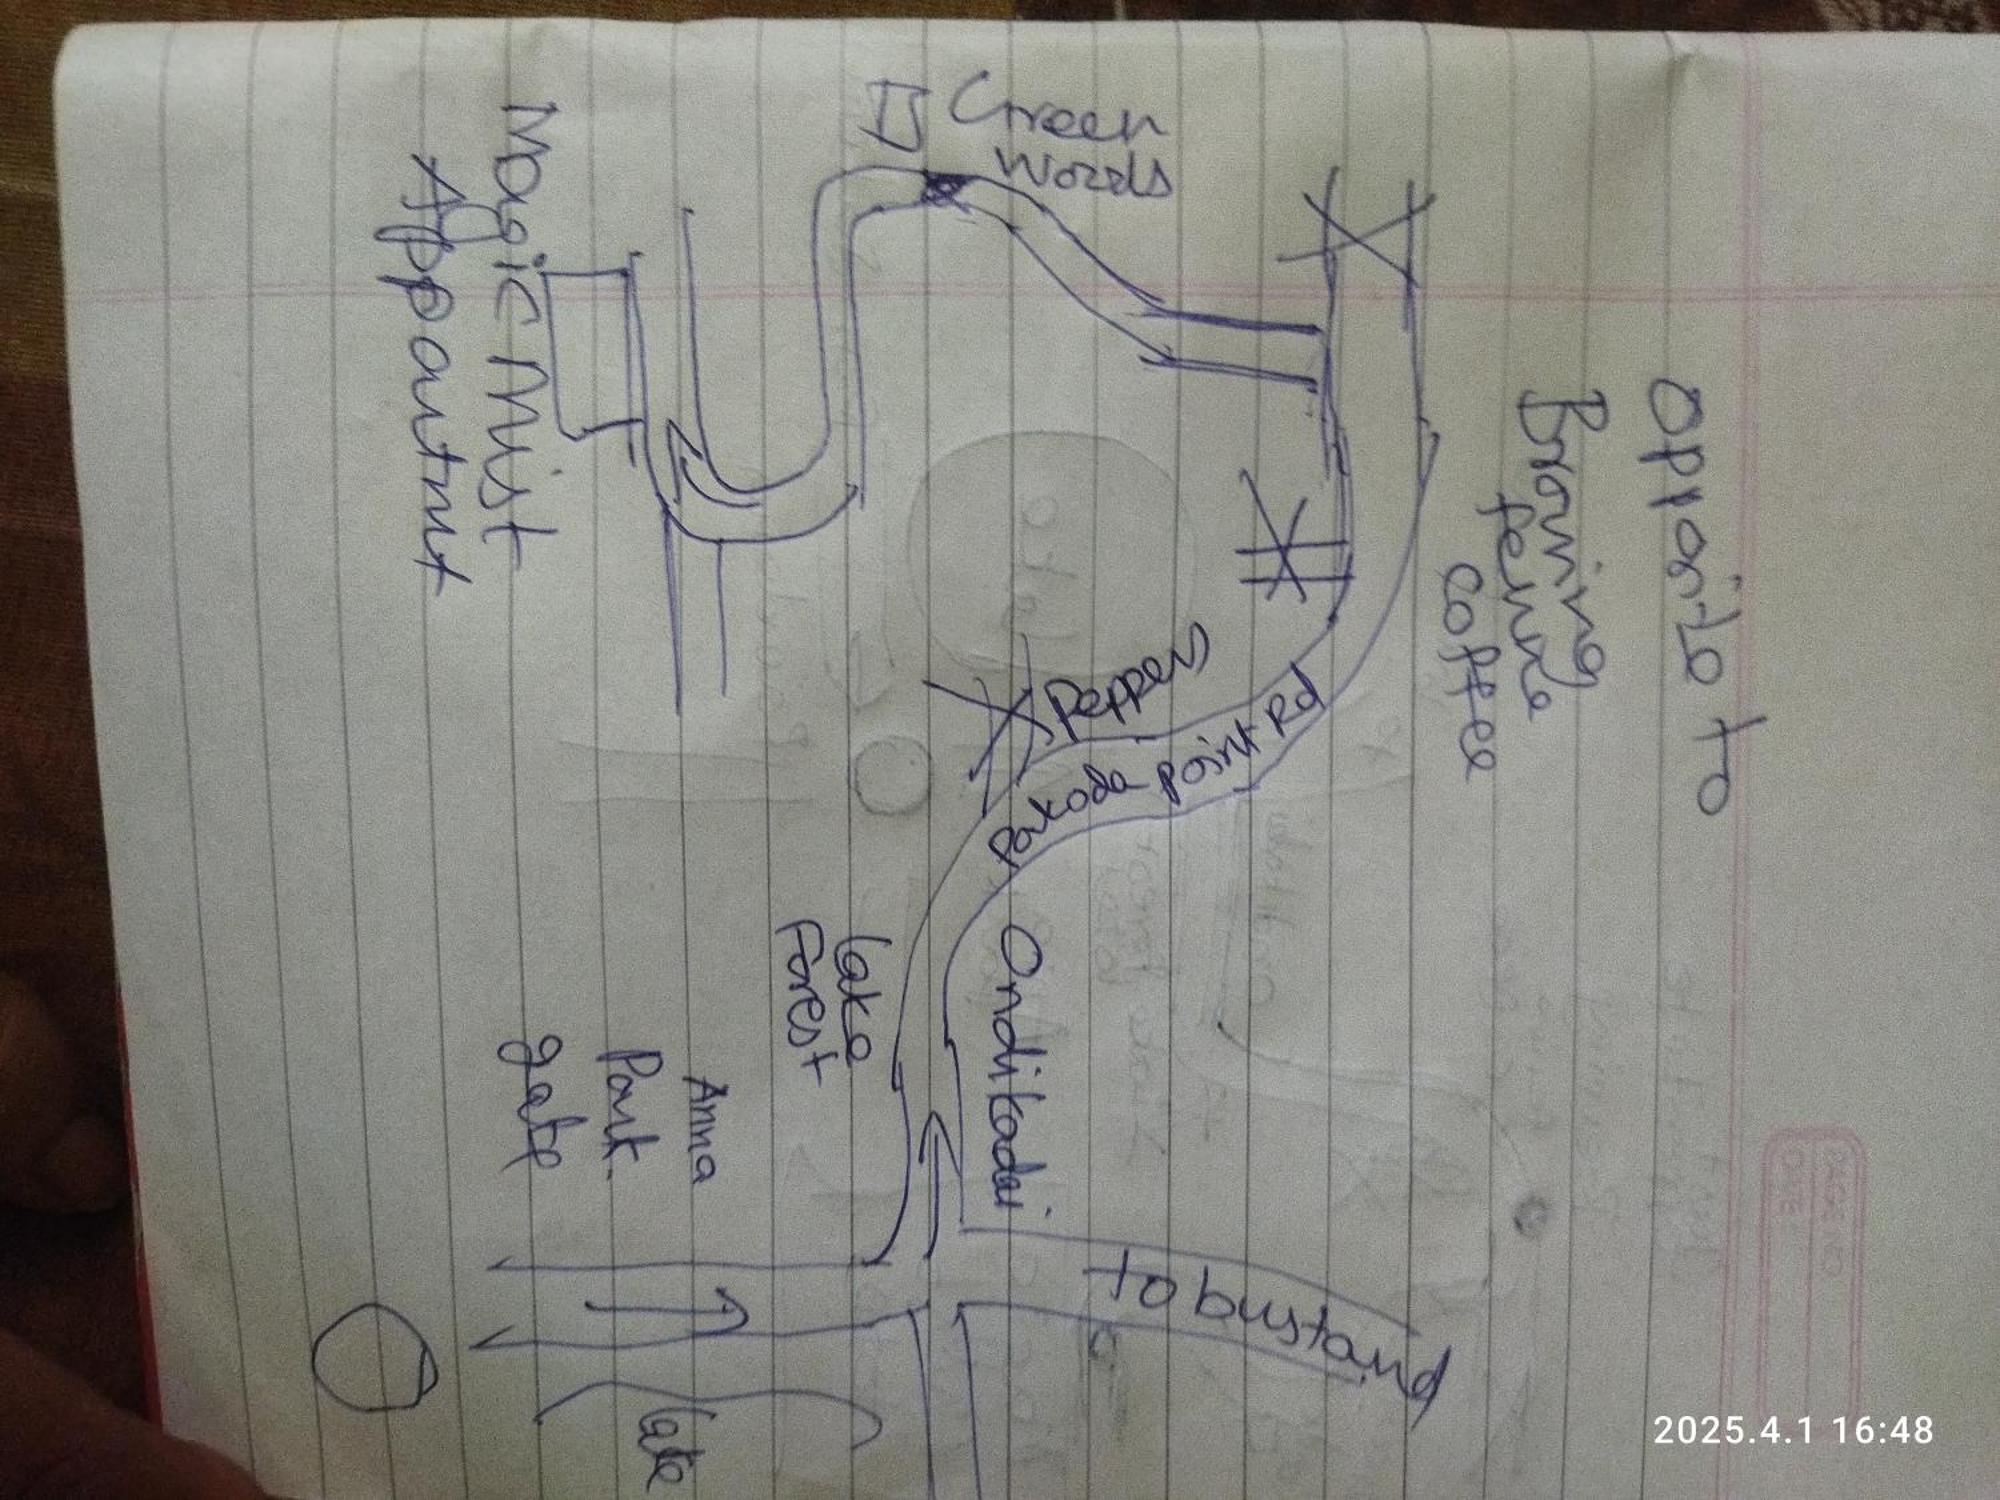 opposite to
Browing
fenve
coffee
Green
Words
Magic Mist
Appartmt
Peppers
Pakoda point Rd
Ondikadai
Lake
Forest
Anna
Park
gate
to bustand
Lake
PAGE NO
DATE
2025.4.1 16:48